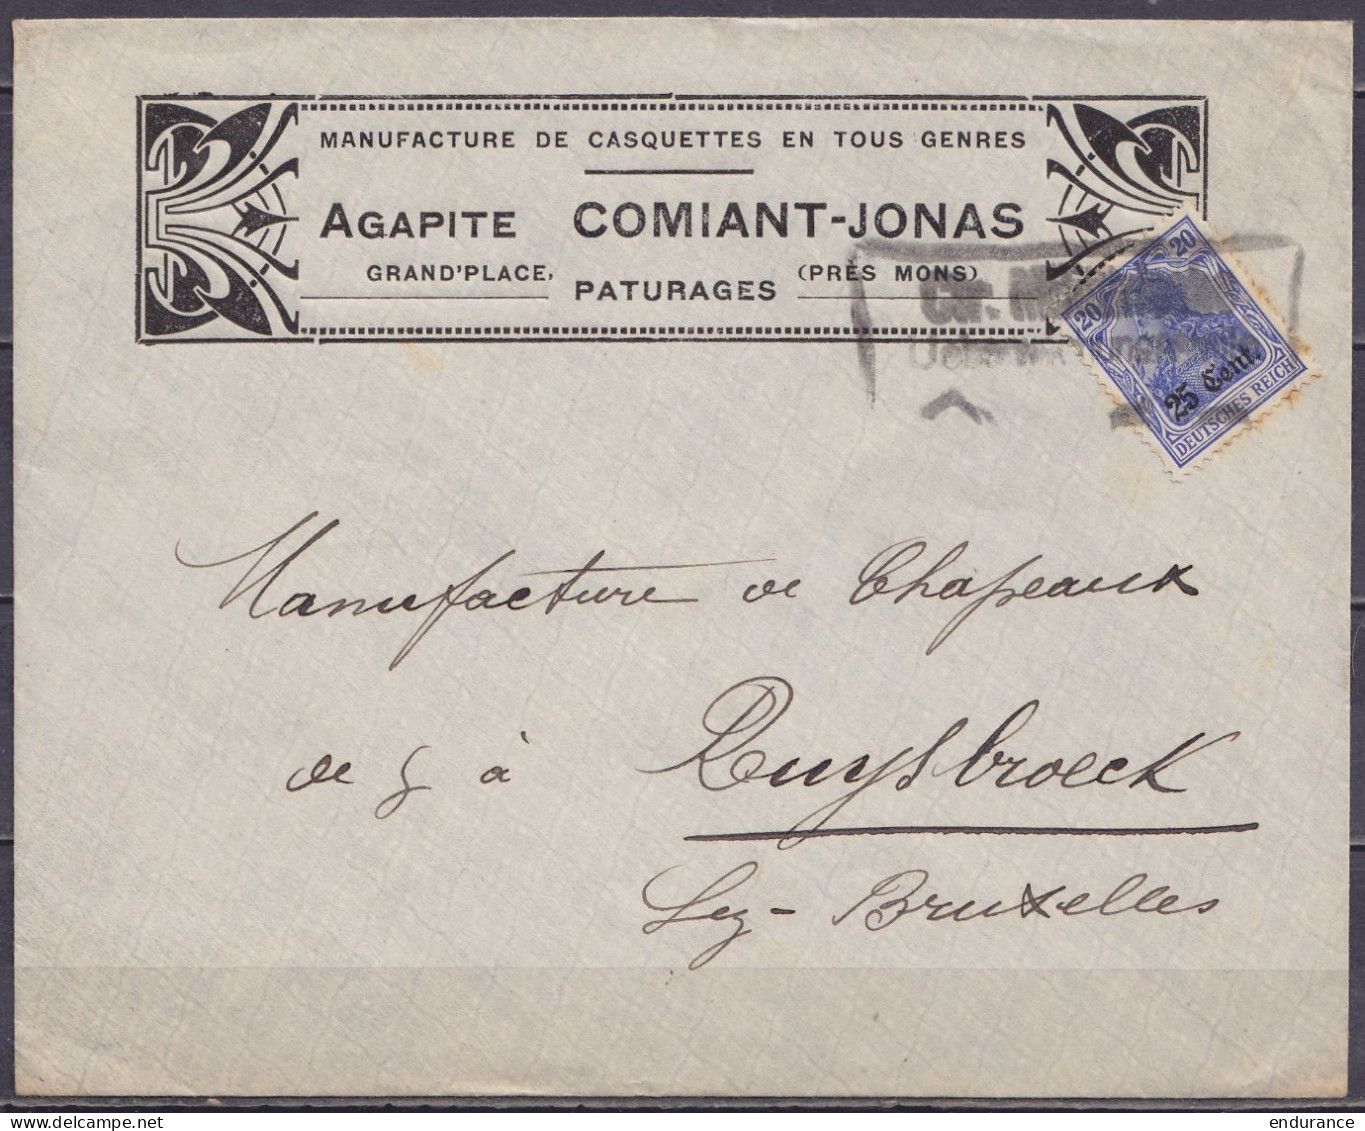 MANUFACTURE DE CASQUETTES EN TOUS GENRES
AGAPITE COMIANT-JONAS
GRAND'PLACE, PATURAGES (PRÈS MONS)
20 20
25 Cent.
DEUTSCHES REICH
Manufacture de Chapeaux
de à Ruysbroeck
Lez-Bruxelles
endurance